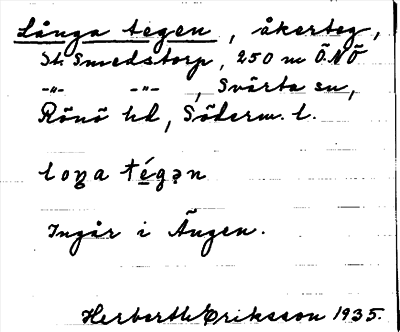 Långa tegen, åkerteg,
St. Smedstorp, 250 m ÖNÖ
-"- -"-, Svärta sn,
Rönö hd, Söderm. l.
loŋa tégən
Ingår i Ängen.
Herbert Eriksson 1935.